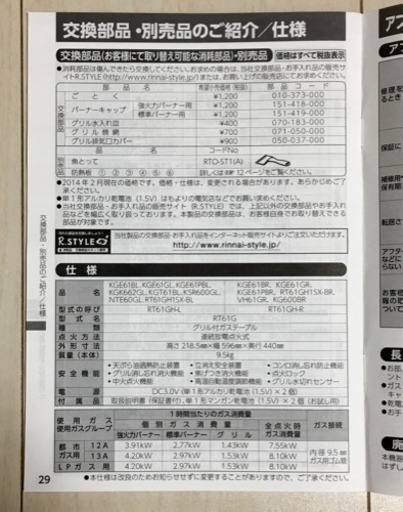 交換部品・別売品のご紹介／仕様
交換部品(お客様にて取り替え可能な消耗部品)・別売品 価格はすべて税抜表示
●消耗部品は傷んできたら交換してください。お求めの場合は、当社部品・お手入れ品の販売サイトR.STYLE(http://www.rinnai-style.jp/)または、お買い上げの販売店にてお求めください。
部品名 希望小売価格(税抜) 部品コード
交換部品
ごとく ¥1,200 010-373-000
バーナーキャップ 強火力バーナー用 ¥1,200 151-418-000
標準バーナー用 ¥1,200 151-419-000
グリル水入れ皿 ¥400 070-183-000
グリル焼網 ¥700 071-050-000
グリル排気口カバー ¥900 050-037-000
品名 コードNo
別売品
魚とって RTO-ST1(A)
防熱板 ① ② ③ ④ ⑤ ⑥ 詳しくは 12ページをご覧ください。
●2014年2月現在の価格です。価格・仕様は、変更される場合があります。あらかじめご了承ください。
●単1形アルカリ乾電池(1.5V)はもよりの電気店などでお買い求めください。
●当社交換部品・お手入れ品の販売サイト(R.STYLE)では、上記以外の交換部品やお手入れ品なども幅広く取り扱っております。本製品の交換部品は、お客様自身でお取り替えできる部品が対象です。
R.STYLE
当社製品の交換部品・お手入れ品をインターネット販売サイトよりご注文いただけます。
http://www.rinnai-style.jp/
仕様
品名 KGE61BL、KGE61GL、KGE61PBL、 KGE61BR、KGE61GR、
KGK662GL、KGT61BL、KSR600GL、 KGE61PBR、RT61GH1SX-BR、
NTE60GL、RT61GH1SX-BL VH61GR、KG600BR
型式の呼び RT61GH-L RT61GH-R
型式名 RT61G
種類 グリル付ガステーブル
点火方式 連続放電点火式
外形寸法 高さ218.5mm×幅596mm×奥行440mm
質量(本体) 9.5kg
安全機能 ●天ぷら油過熱防止機能 ●立消え安全装置 ●コンロ消し忘れ消火機能
●グリル消し忘れ消火機能 ●焦げつき消火機能 ●点火ロック
●中火点火機能 ●高温自動温度調節機能 ●グリル水切れセンサー
電源 DC3.0V(単1形アルカリ乾電池(1.5V)×2個)
付属品 取扱説明書(保証書付)、単1形マンガン乾電池(1.5V)×2個(お試し用)
使用ガス 1時間当たりのガス消費量 ガス接続
使用ガスグループ 個別ガス消費量 全点火時ガス消費量
強火力バーナー 標準バーナー グリル
都市ガス用 12A 3.91kW 2.77kW 1.43kW 7.55kW 内径9.5mmガス用ゴム管
13A 4.20kW 2.97kW 1.53kW 8.10kW
LPガス用 4.20kW 2.97kW 1.53kW 8.10kW
●本仕様は改良のためお知らせせずに変更することがありますので、ご了承ください。
29
交換部品・別売品のご紹介／仕様